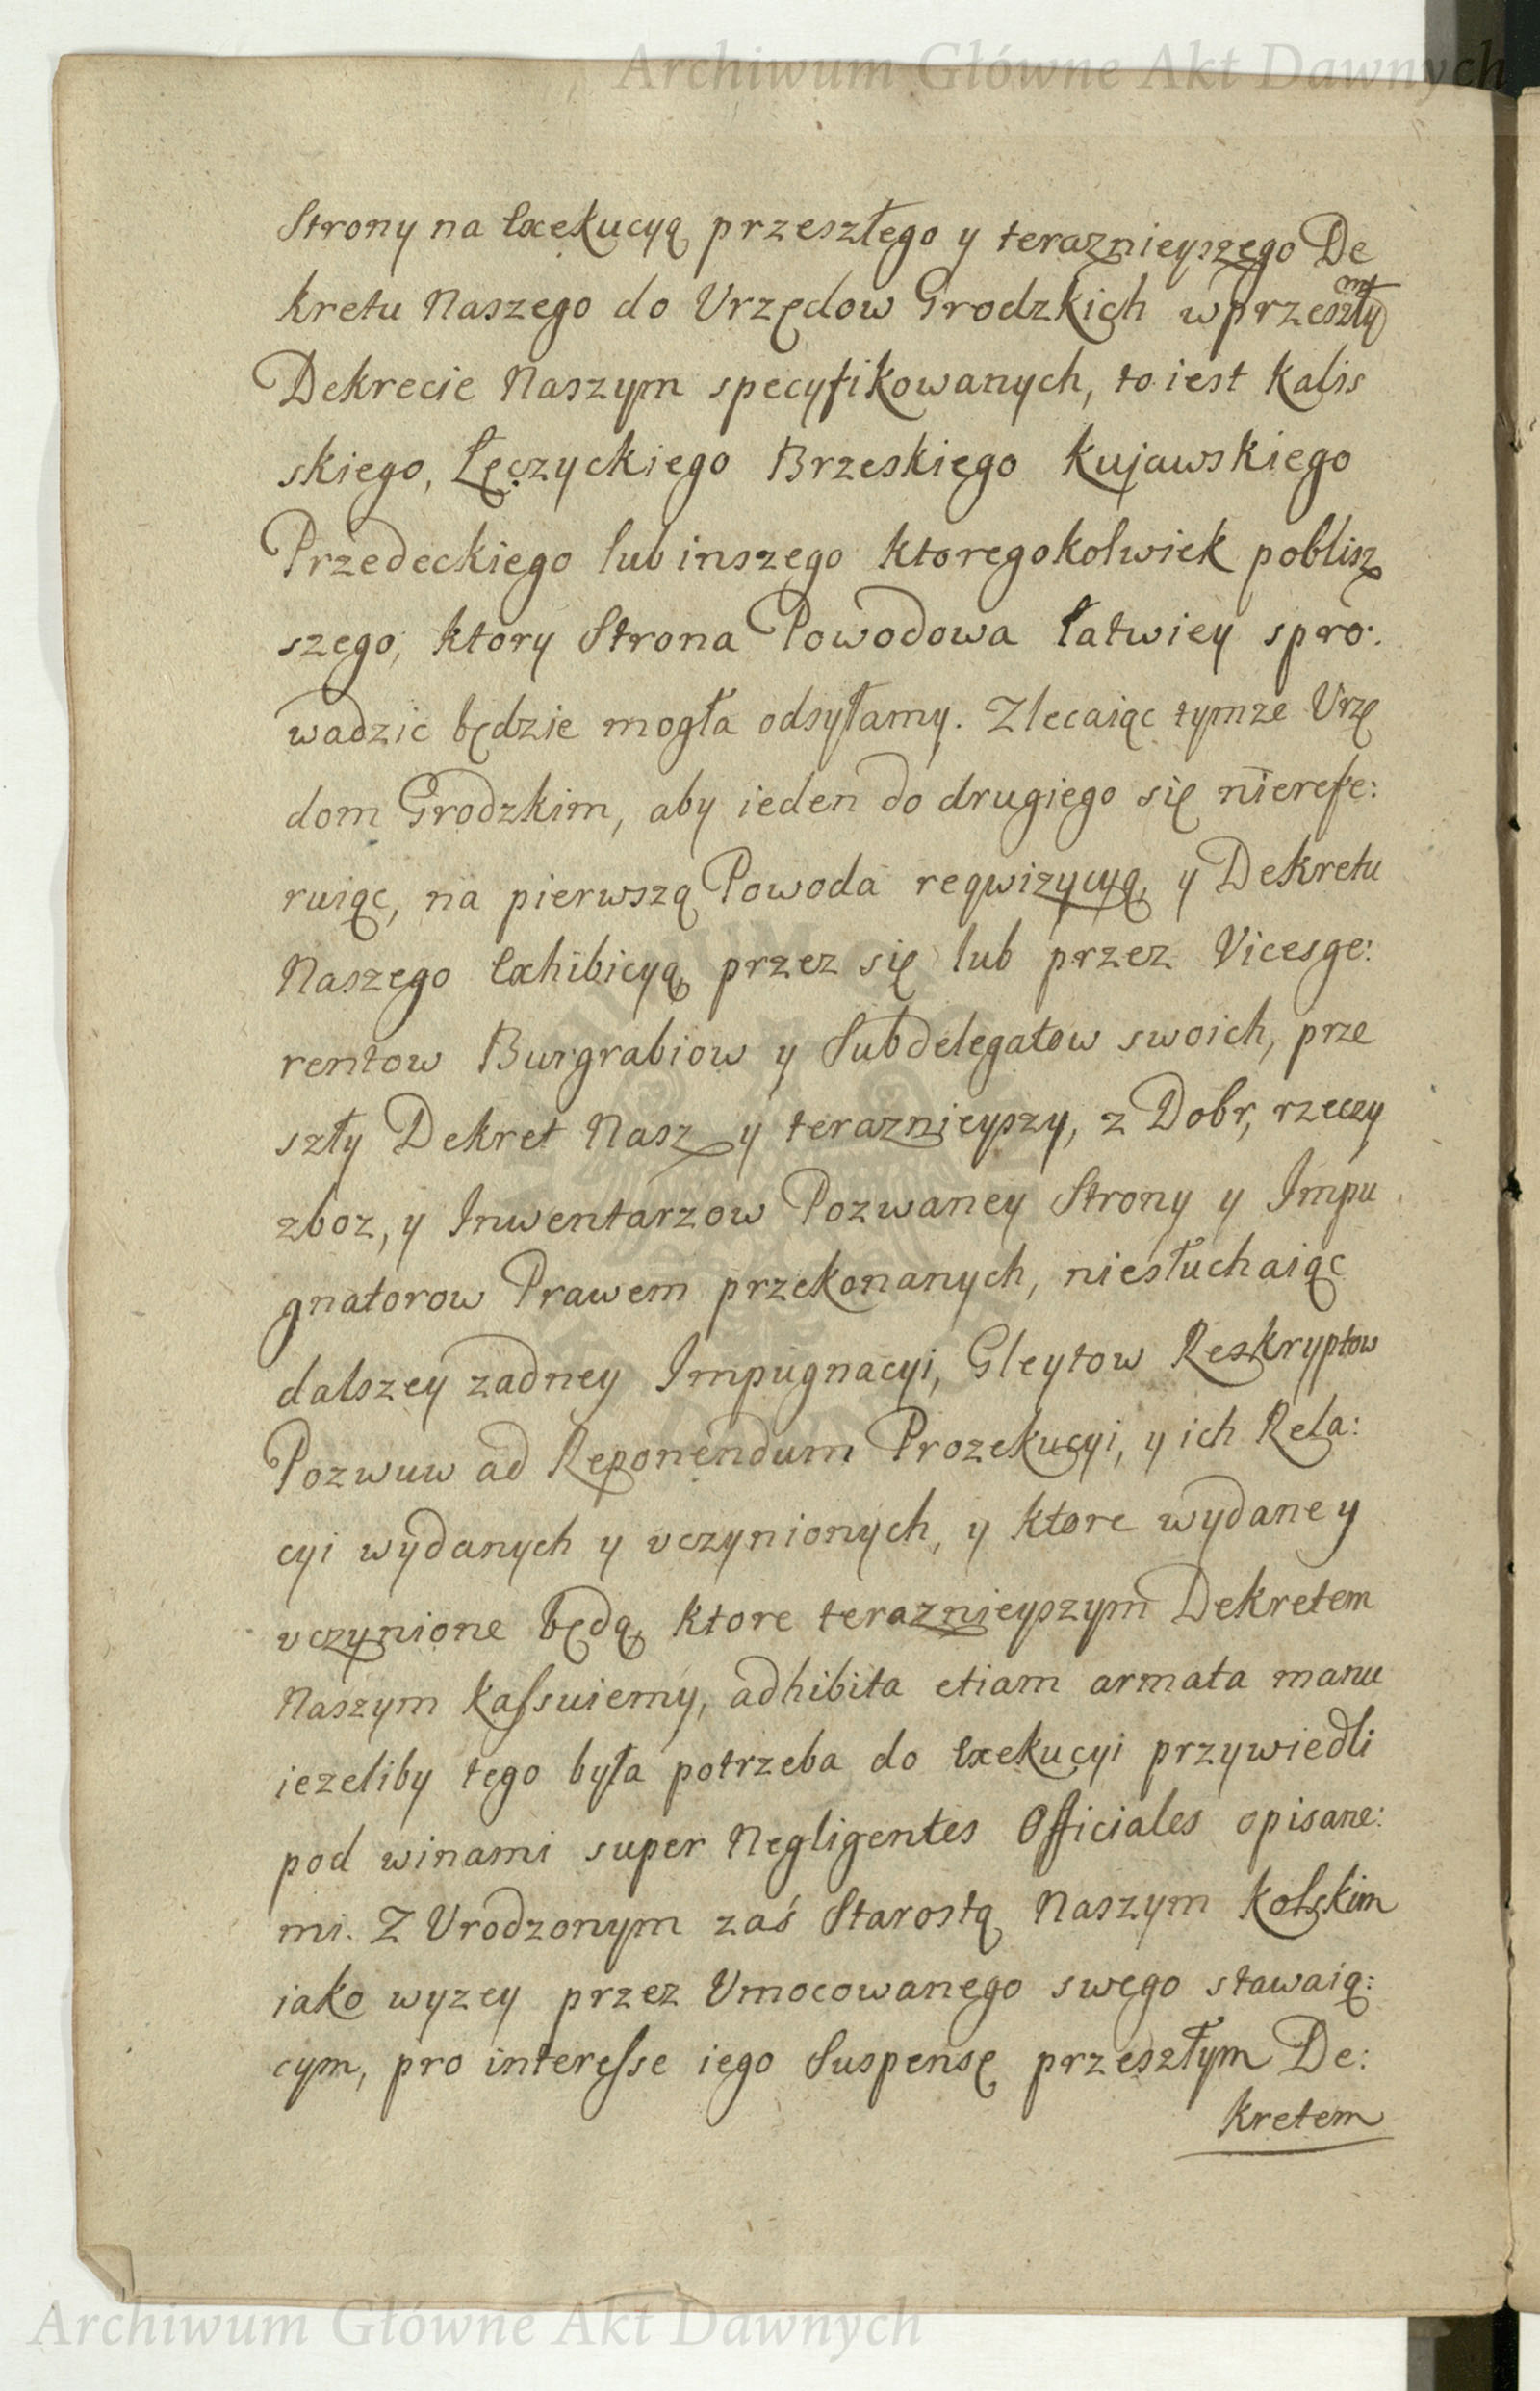 Archiwum Główne Akt Dawnych
Strony na Exekucyą przeszłego y teraznieyszego De
kretu Naszego do Vrzędow Grodzkich wprzeszłym
Dekrecie Naszym specyfikowanych, to iest Kalis
skiego, Łęczyckiego Brzeskiego Kujawskiego
Przedeckiego lub inszego ktoregokolwiek poblisz
szego, ktory Strona Powodowa łatwiey spro:
wadzic będzie mogła odsyłamy. Zlecaiąc tymze Vrzę
dom Grodzkim, aby ieden do drugiego się nierefe:
ruiąc, na pierwszą Powoda reqwizycyą, y Dekretu
Naszego Exhibicyą, przez się lub przez Vicesge:
rentow Burgrabiow y Subdelegatow swoich, prze
szły Dekret Nasz y teraznieyszy, z Dobr, rzeczy
zboz, y Inwentarzow Pozwaney Strony y Impu
gnatorow Prawem przekonanych, niesłuchaiąc
dalszey zadney Impugnacyi, Gleytow Reskryptow
Pozwuw ad Reponendum Prozekucyi, y ich Rela:
cyi wydanych y vczynionych, y ktore wydane y
vczynione będą, ktore teraznieyszym Dekretem
Naszym kaſsuiemy, adhibita etiam armata manu
iezeliby tego była potrzeba do Exekucyi przywiedli
pod winami super Negligentes Officiales opisane:
mi. Z Vrodzonym zaś Starostą Naszym Kolskim
iako wyzey przez Vmocowanego swego stawaią:
cym, pro intereſse iego Suspensę przeszłym De:
kretem
Archiwum Główne Akt Dawnych